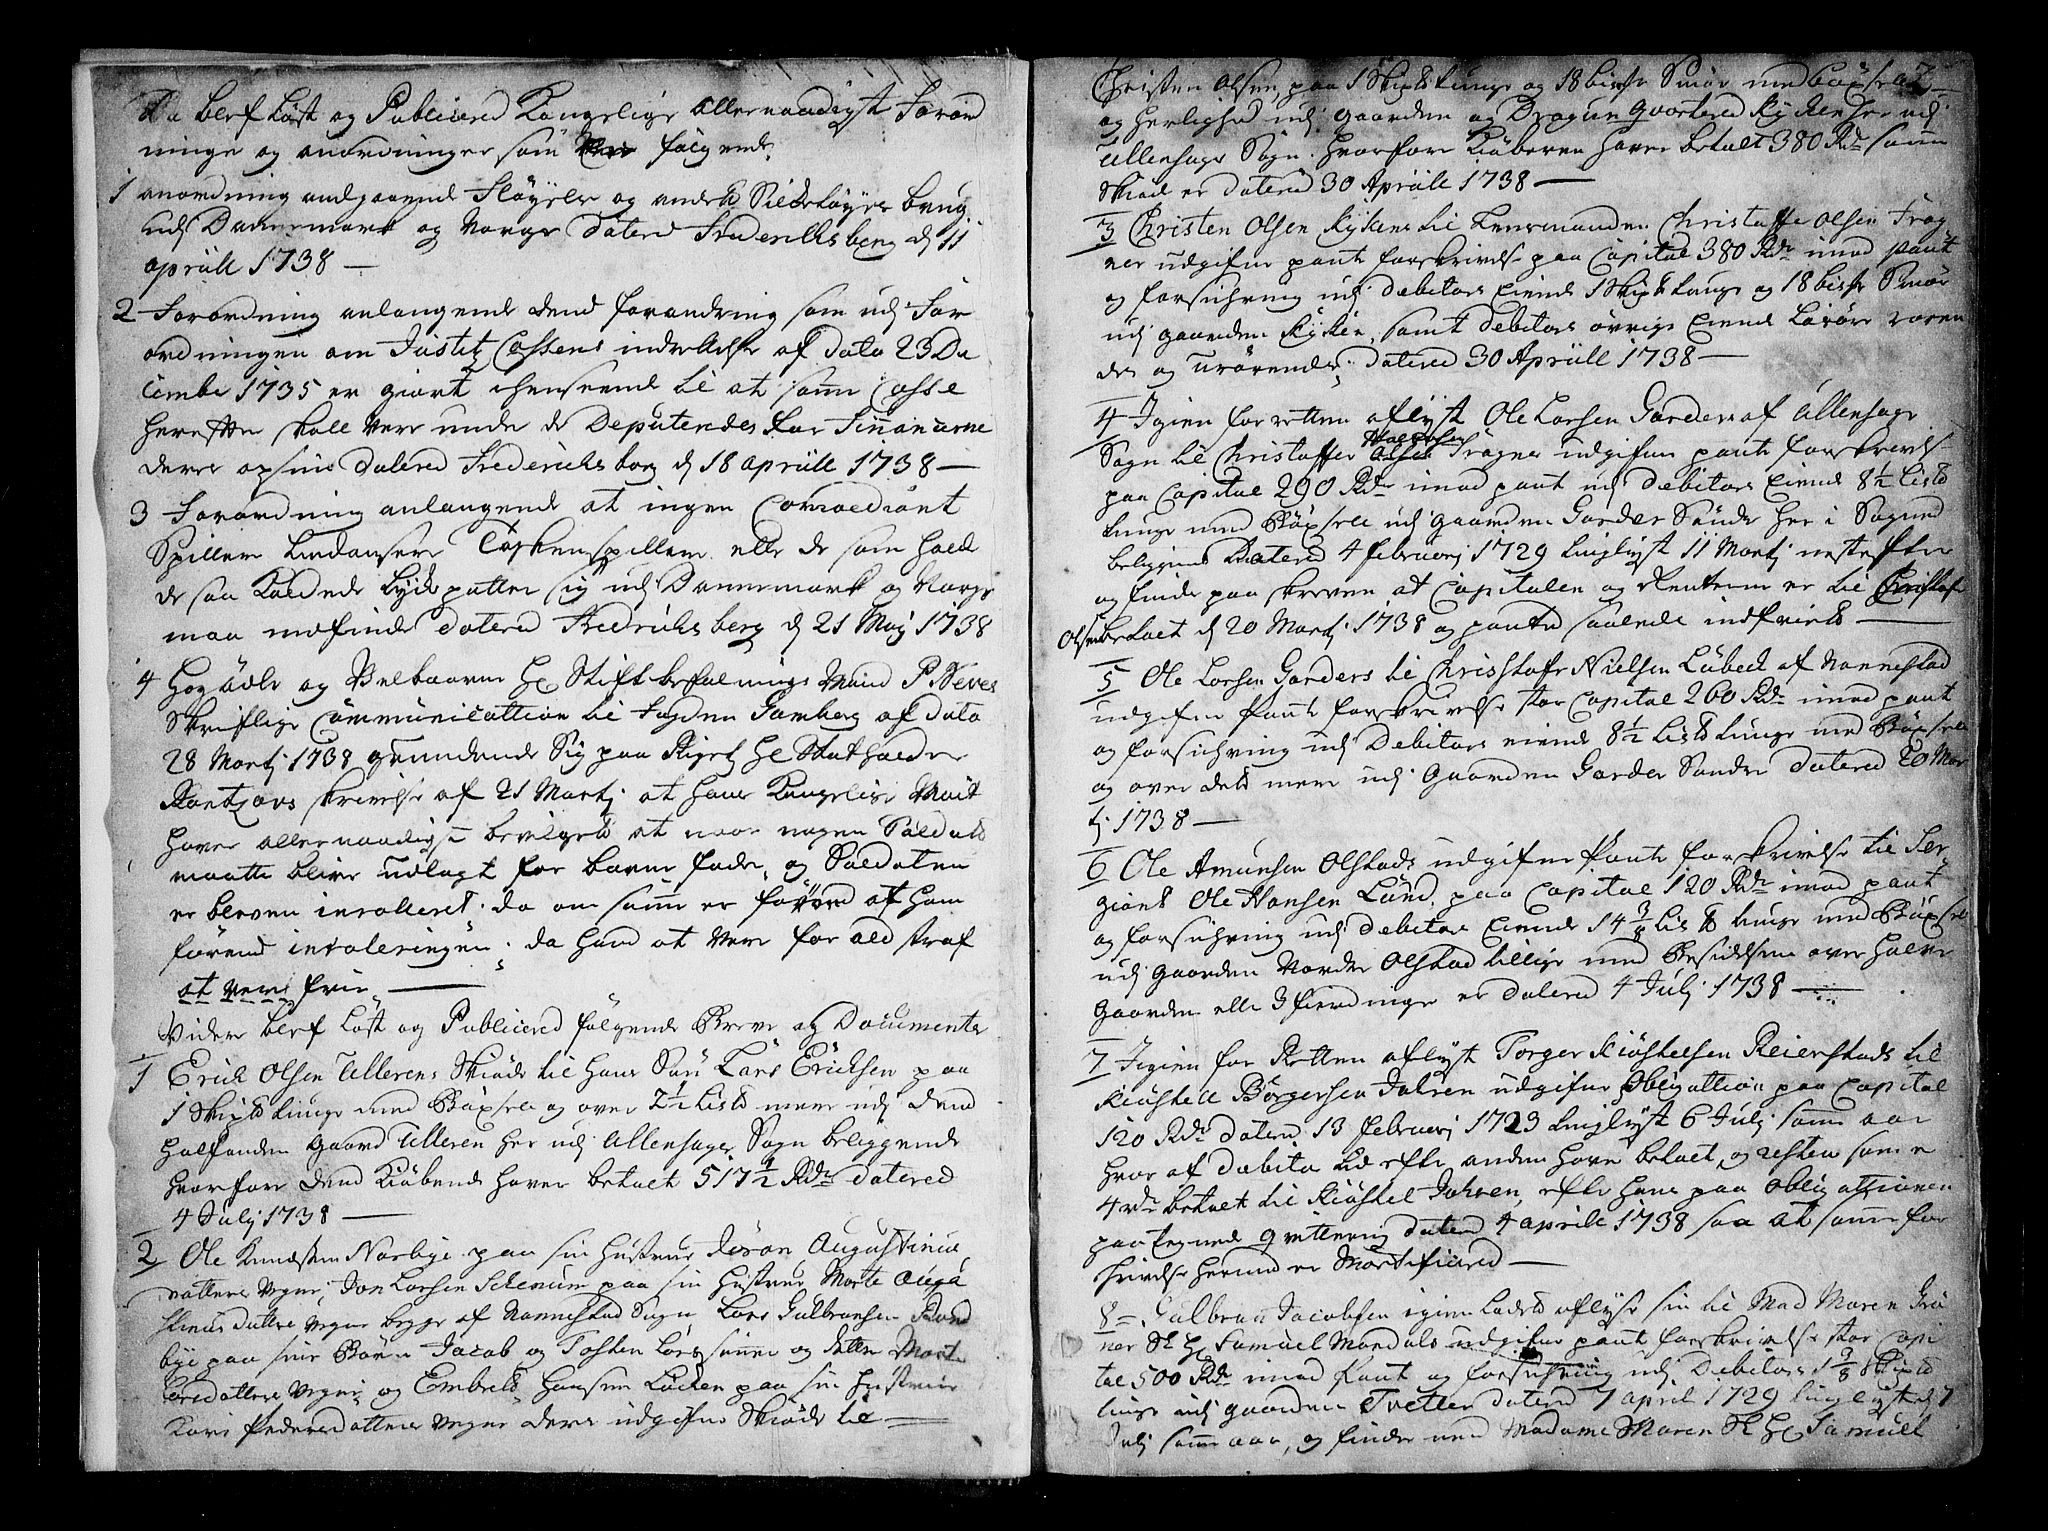 Da blef Læst og Publicered Kongelige allernaadigst Forord
ninge og anordninger som følgende.
1 anordning andgaaende Fløyels og andet Silcketøyes brug
udj Dannemark og Norge Datered Frederichsberg d 11
aprill 1738 —
2 Forordning anlangende dend forandring som udj For
ordningen om Justitz Cassens inderettelse af Dato 23 De
cembr 1735 er giort i henseende til at samme Casse
herefter skall være under de Deputeredes for Financierne
deres opsiun Datered Frederichsborg d 18 aprill 1738 —
3 Forordning anlangende at ingen Comoediant
Spillere Lindansere Taskenspillere eller de som hold
de saa kaldede Lycke potter sig udj Dannemark og Norge
maa indfinde datered Fredrichsberg d 21 Martj 1738
4 Høyædle og Velbaarne Hr Stiftbefalnings Mand P Neves
Skriftlige Communication til Fogden Gamborg af Dato
28 Martj 1738 grundende Sig paa Riigets Hr Stathalder
Rantzous skrivelse af 21 Martj at hans Kongelige Mait
hafver allernaadigst bevilget at naar nogen Soldat
maatte blive udlagt for barne fader, og Soldaten
er bleven inrolleret da om samme er før end af ham
førend inroleringen, da hand at være for all straf
at være frie —
Videre blef Læst og Publicered følgende Breve og Documenter
1 Erick Olsen Ullerens Skiøde til hans Søn Lars Ericksen paa
1 Skipd tunge med Böxsell og over 2½ Lispd mere udj dend
halfanden gaard Ulleren her udj Ullensager Sogn beliggende
hvorfore dend Kiøbende hafver betalt 517½ Rdr datered
4 Julj 1738 —
2 Ole Knudsen Norbye paa sin Hustrue Augustinus
datters vegne, Jon Larsen paa sin Hustrue Marte Augu
stinus datters vegne begge af Nannestad Sogn Lars Gulbransen
bye paa sine Børn Jacob og Tosten Lars sønner og
datters vegne og Embret Hansen Løcken paa sin Hustrues
Kari Pedersdatters vegne deres udgifne Skiøde til —
Christen Olsen paa 1 Skipd tunge og 18 bis Smør med böxsel 2
og herlighed udj gaarden og Dragun qvarteret Kycken her udj
Ullensager Sogn hvorfore Kiøberen hafver betalt 380 Rdr samme
Skiøde er datered 30 Aprill 1738 —
3 Christen Olsen Kycken til Lensmanden Christoffer Olsen Frog
ner udgifne pante forskrivelse paa Capital 380 Rdr imod pant
og forsichring udj debitors eiende 1 Skipd tunge og 18 bis Smør
udj gaarden Kycken, samt debitors øvrige eiende Løsøre røren
des og urørendes, datered 30 Aprill 1738 —
4 Igien for retten aflyst Ole Larsen Garders af Ullensager
Sogn til Christoffer Olsen Frogner udgifne pante forskrivelse
paa Capital 290 Rdr imod pant udj debitors Eiende 8½ Lispd
tunge med Böxsell udj gaarden Garder Søndre her i Sognet
beliggende Datered 4 februarj 1729 tinglyst 11 Martj nestefter
og findes paa skreven at Capitalen og Renterne er til Christoffer
Olsen betalt d 20 Martj 1738 og pantet saaledes indfriet —
5 Ole Larsen Garders til Christoffer Nielsen Lübeck af Nannestad
udgifne Pante forskrivelse stor Capital 260 Rdr imod pant
og forsichring udj Debitors eiende 8½ Lispd tunge med Böxsell
og over dets mere udj gaarden Garder Søndre datered 20 Mar
tj 1738 —
6 Ole Amunsen Olstads udgifne Pante forskrivelse til Ser
giant Ole Hansen Lund, paa Capital 120 Rdr imod pant
og forsichring udj debitors Eiende 14 Lispd tunge med Böxsel
udj gaarden Nordre Olstad tillige med Besidelsen over halve
gaarden eller 3 fierdinger er datered 4 Julj 1738 —
7 Igien for Retten aflyst Torger Kiøstelsen Reierstads til
Kiøstell Børgersen Jahren udgifne Obligation paa Capital
120 Rdr datered 13 februarj 1723 tinglyst 6 Julj samme aar
hvor af debitor tid efter anden hafver betalt, og resten som er
4 rdr betalt til Kiøstel Jahren, efter hans paa obligationen
paategned qvittering datered 4 aprill 1738 saa at samme for
skrivelse hermed er Mortificered —
8 Gulbran Jacobsen igien Ladet aflyse sin til Mad Maren Grø
ner Sl Hr Samuel Mandals udgifne pante forskrivelse stor Capi
tal 500 Rdr imod Pant og forsichring udj Debitors 1⅜ Skipd
tunge udj gaarden Tveter datered 7 april 1729 tinglyst d 7
Julj samme aar, og findes med Madame Maren Sl Hr Samuel